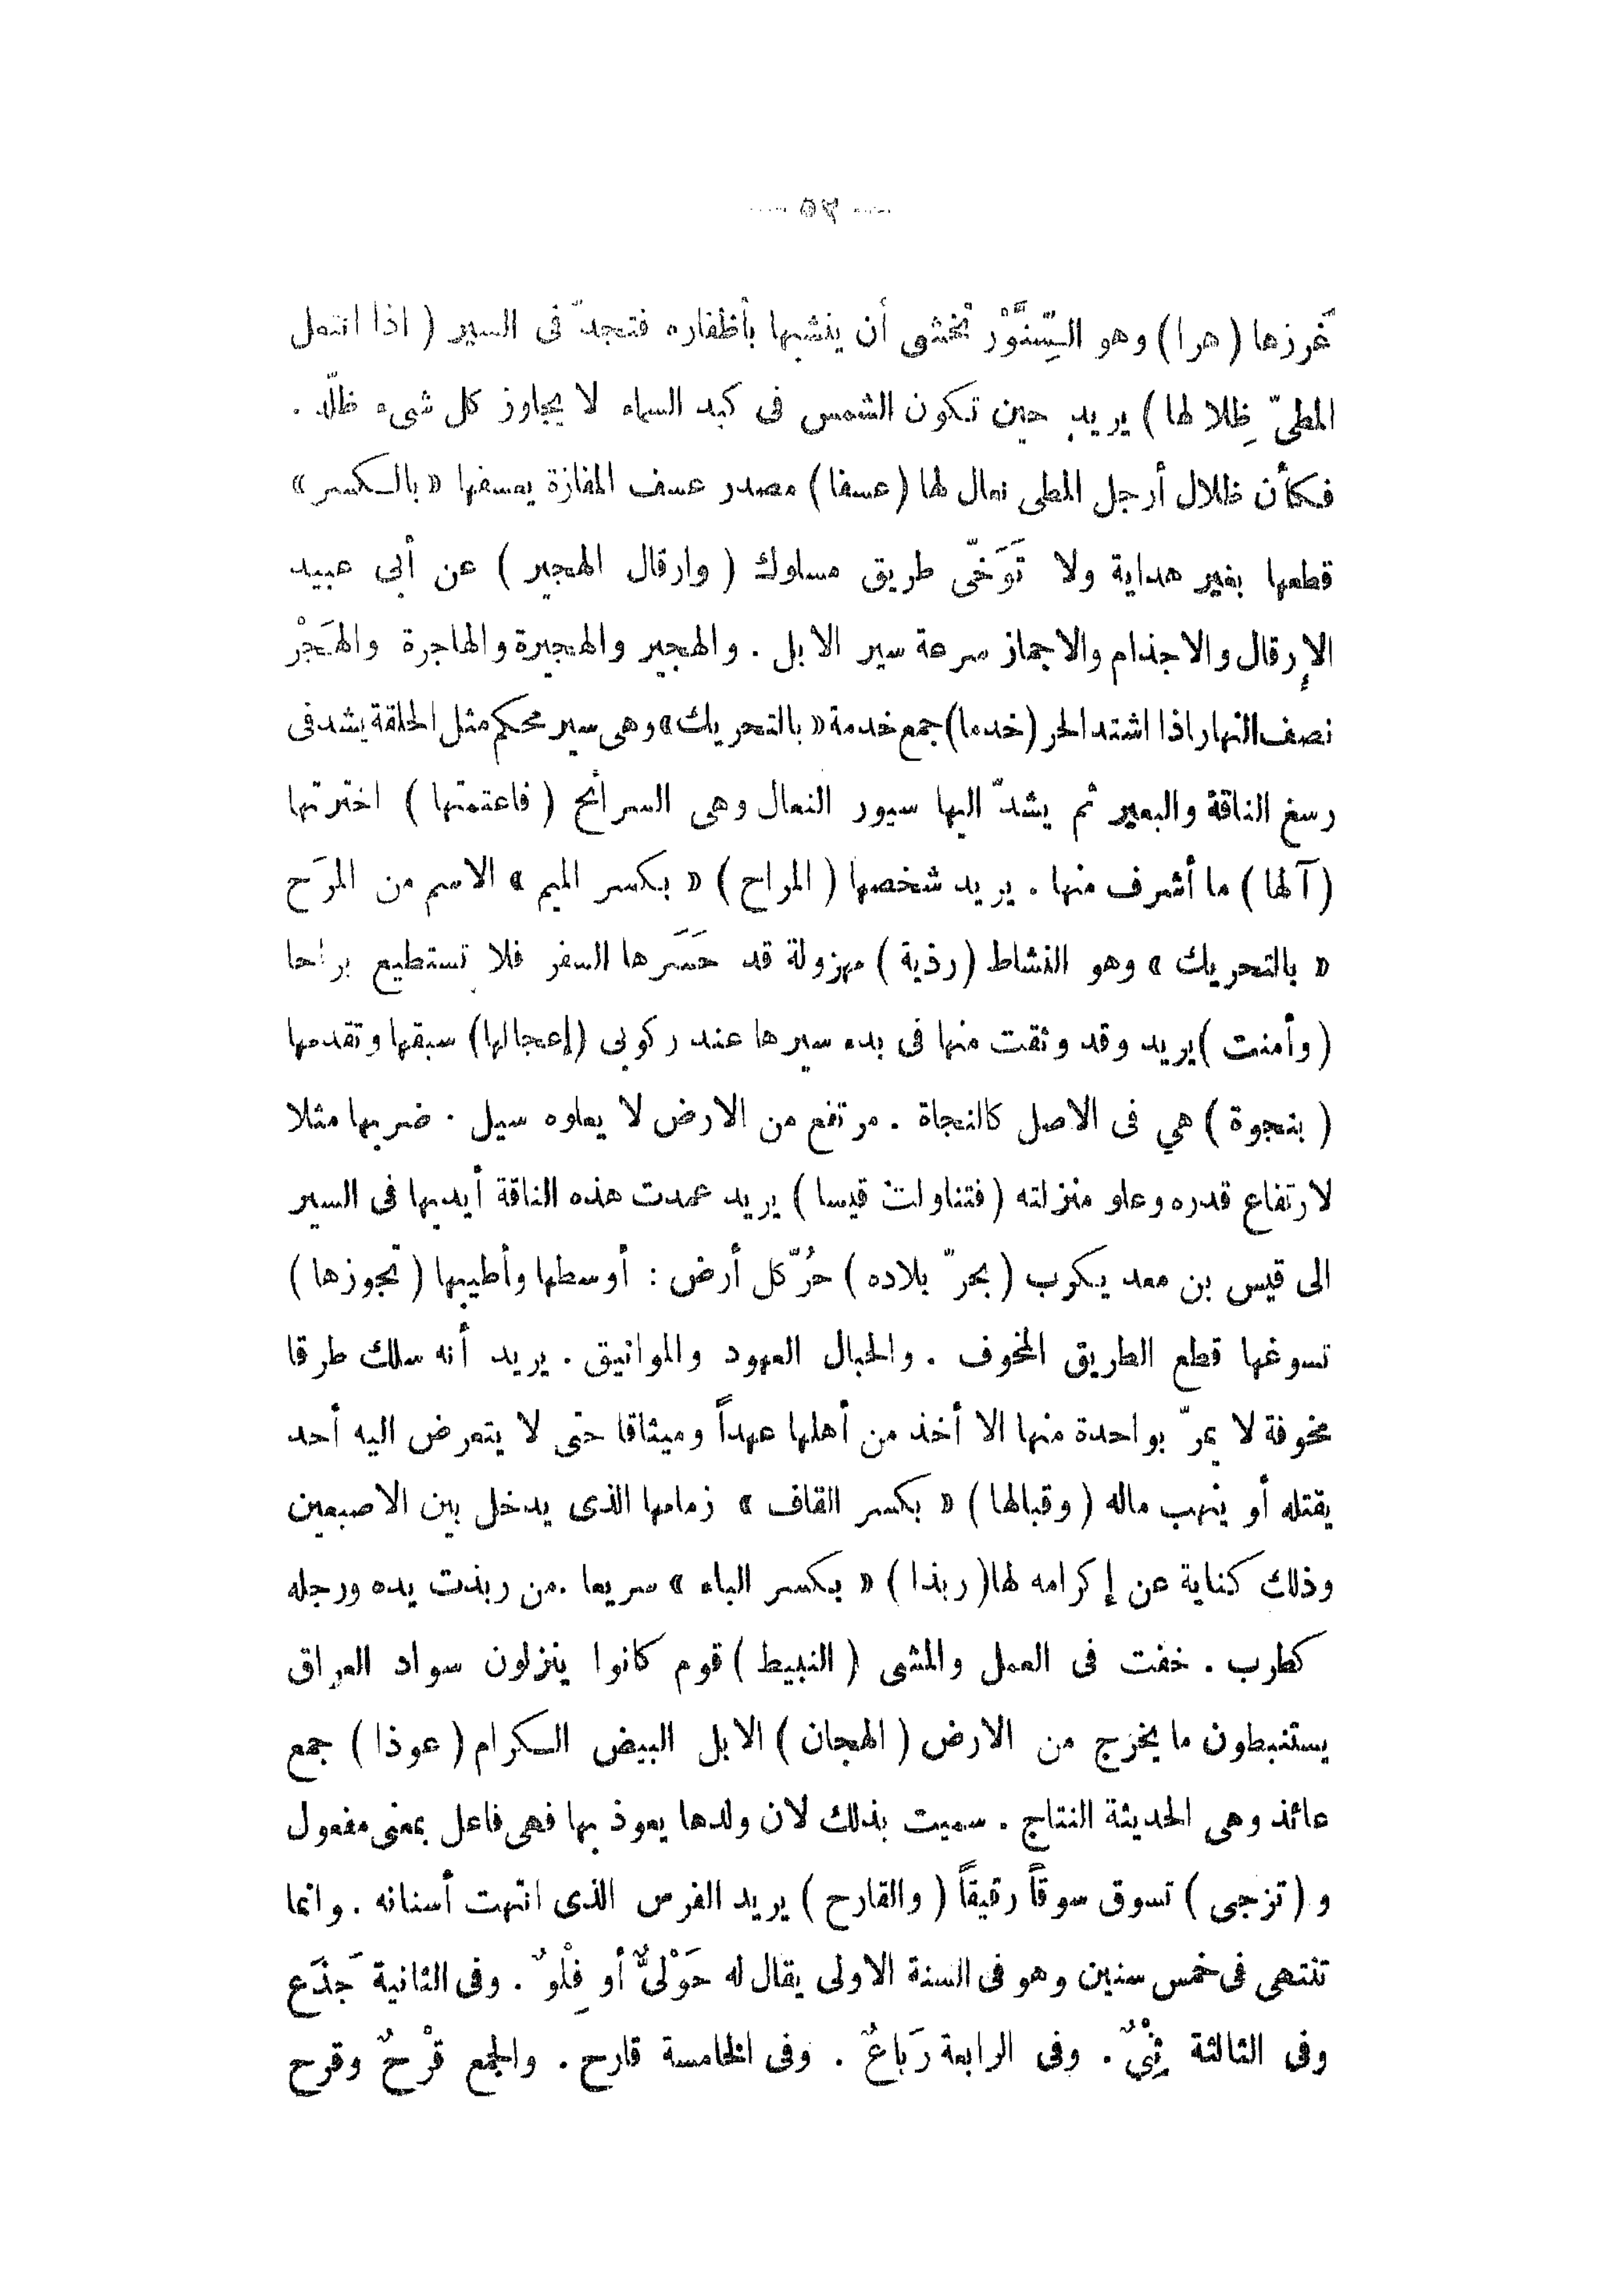 — ٥٢ —
غَرزها (هرا) وهو السِّنَّوْر تخشى أن ينشبها بأظفاره فتجدّ فى السير (اذا انتعل
المطىّ ظِلالها) يريد حين تكون الشمس فى كبد السماء لا يجاوز كل شىء ظلّه .
فكأن ظلال أرجل المطى نعال لها (عسفا) مصدر عسف المفازة يعسفها «بالكسر»
قطعها بغير هداية ولا تَوَخّى طريق مسلوك (وارقال الهجير) عن أبى عبيد
الإرقال والاجذام والاجماز سرعة سير الابل . والهجير والهجيرة والهاجرة والهَجْر
نصف النهار اذا اشتد الحر (خدما) جمع خدمة «بالتحريك» وهى سير محكم مثل الحلقة يشد فى
رسغ الناقة والبعير ثم يشدّ اليها سيور النعال وهى السرائح (فاعتمتها) اخترتها
(آلها) ما أشرف منها . يريد شخصها (المراح) «بكسر الميم» الاسم من المرَح
«بالتحريك» وهو النشاط (رذية) مهزولة قد حَسَرها السفر فلا تستطيع براحا
(وأمنت) يريد وقد وثقت منها فى بدء سيرها عند ركوبى (إعجالها) سبقها وتقدمها
(بنجوة) هي فى الاصل كالنجاة . مرتفع من الارض لا يعلوه سيل . ضربها مثلا
لارتفاع قدره وعلو منزلته (فتناولت قيسا) يريد عمدت هذه الناقة أيديها فى السير
الى قيس بن معد يكرب (بحرّ بلاده) حُرّ كل أرض : أوسطها وأطيبها (تجوزها)
تسوغها قطع الطريق المخوف . والحبال العهود والمواثيق . يريد أنه سلك طرقا
مخوفة لا يمرّ بواحدة منها الا أخذ من أهلها عهداً وميثاقا حتى لا يتعرض اليه أحد
يقتله أو ينهب ماله (وقبالها) «بكسر القاف» زمامها الذى يدخل بين الاصبعين
وذلك كناية عن إكرامه لها (ربذا) «بكسر الباء» سريعا . من ربذت يده ورجله
كطرب . خفت فى العمل والمشى (النبيط) قوم كانوا ينزلون سواد العراق
يستنبطون ما يخرج من الارض (الهجان) الابل البيض الكرام (عوذا) جمع
عائذ وهى الحديثة النتاج . سميت بذلك لان ولدها يعوذ بها فهى فاعل بمعنى مفعول
و (تزجى) تسوق سوقاً رقيقاً (والقارح) يريد الفرس الذى انتهت أسنانه . وانما
تنتهى فى خمس سنين وهو فى السنة الاولى يقال له حَوْلىٌّ أو فِلْوٌ . وفى الثانية جَذَع
وفى الثالثة ثِنْىٌ . وفى الرابعة رَبَاعٌ . وفى الخامسة قارح . والجمع قرْحٌ وقرح